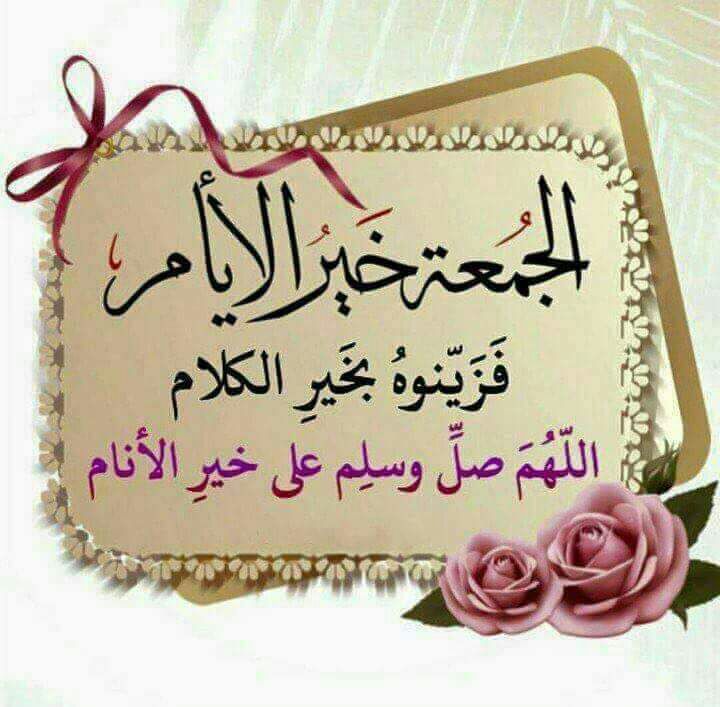 الجمُعة خَيرُ الأيام
فَزَيّنوهُ بخَيرِ الكلام
اللّهُمَ صلِّ وسلِم على خيرِ الأنام